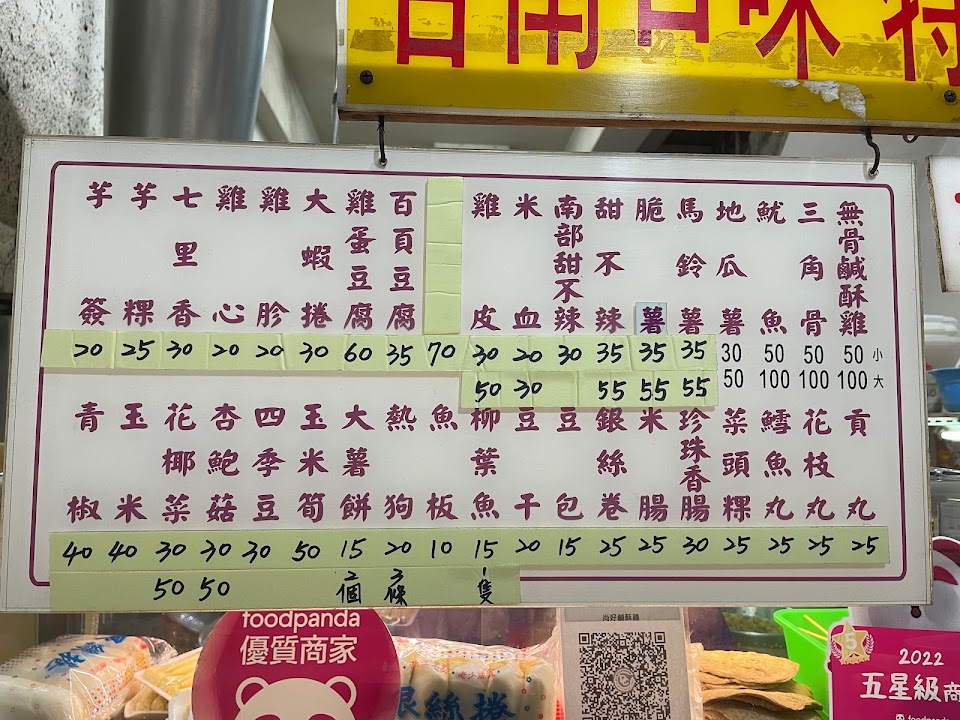 台南口味 特
無骨鹹酥雞 50小 100大
三角骨 50 100
魷魚 50 100
地瓜薯 30 50
馬鈴薯 35 55
脆薯 35 55
甜不辣 35 55
南部甜不辣 30
米血 20 30
雞皮 30 50
70
百頁豆腐 35
雞蛋豆腐 60
大蝦捲 30
雞胗 20
雞心 20
七里香 30
芋粿 25
芋簽 20
貢丸 25
花枝丸 25
鱈魚丸 25
菜頭粿 25
珍珠香腸 30
米腸 25
銀絲卷 25
豆包 15
豆干 20
柳葉魚 15 1隻
魚板 10
熱狗 20 3條
大薯餅 15 2個
玉米筍 50
四季豆 30
杏鮑菇 30 50
花椰菜 30 50
玉米 40
青椒 40
foodpanda
優質商家
尚好鹹酥雞
銀絲捲
5
2022
五星級商
foodpanda